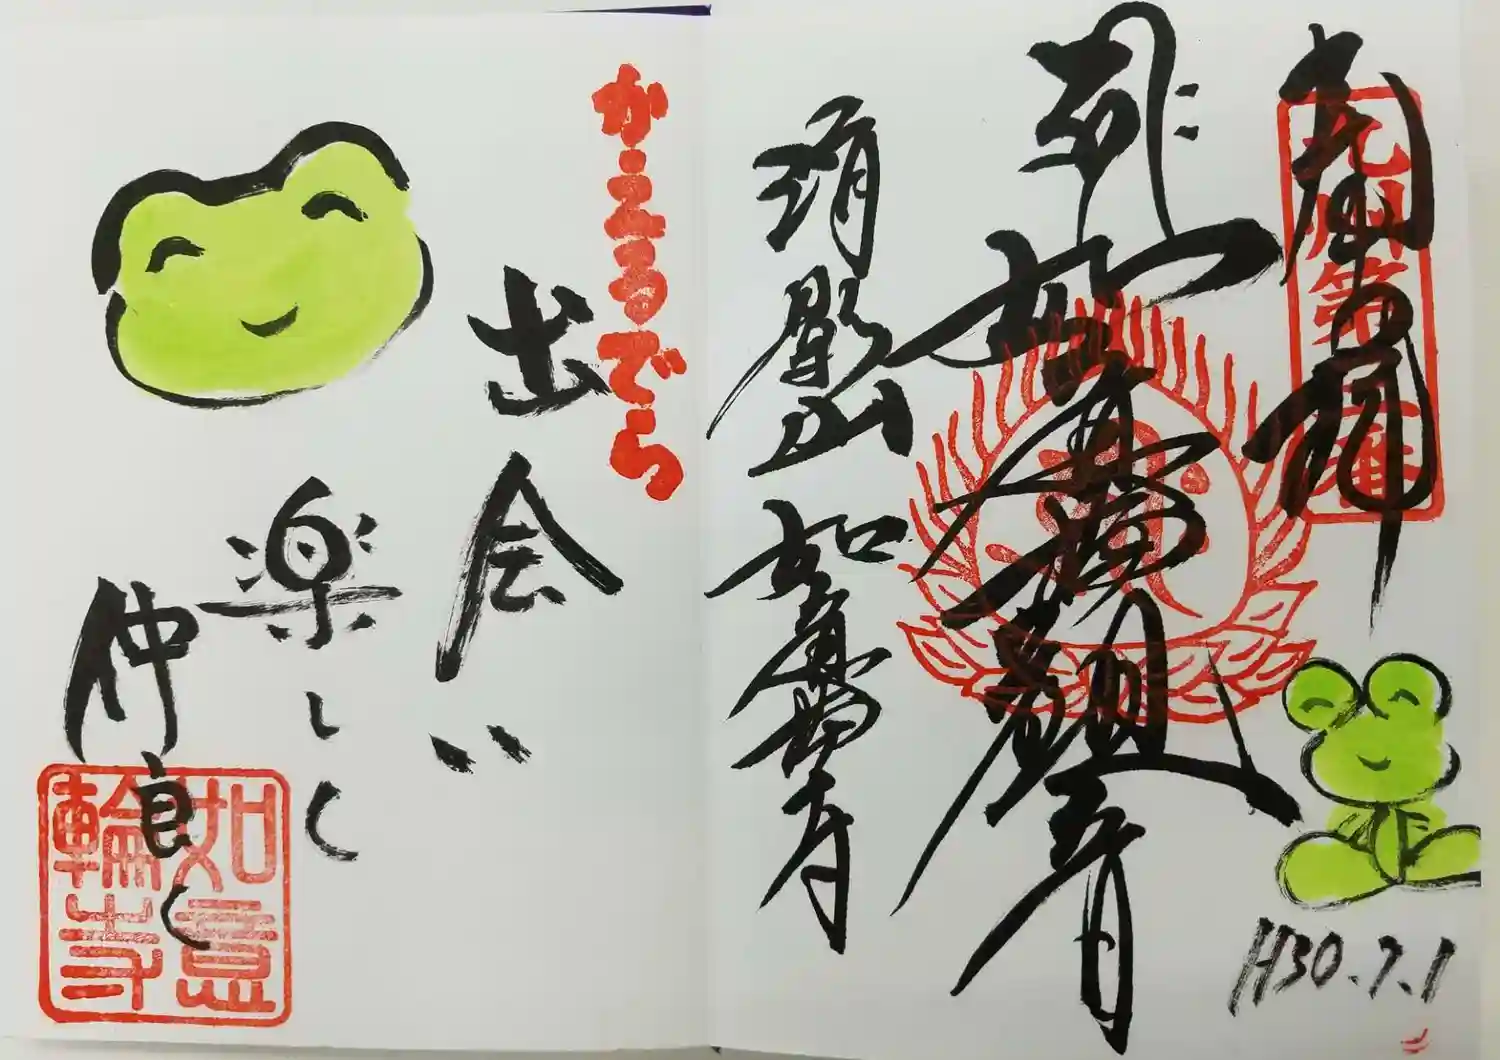 奉拝
H30.7.1
如意輪観音
清影山 如意輪寺
かえるでら
出会い
楽しく
仲良く
如意輪寺